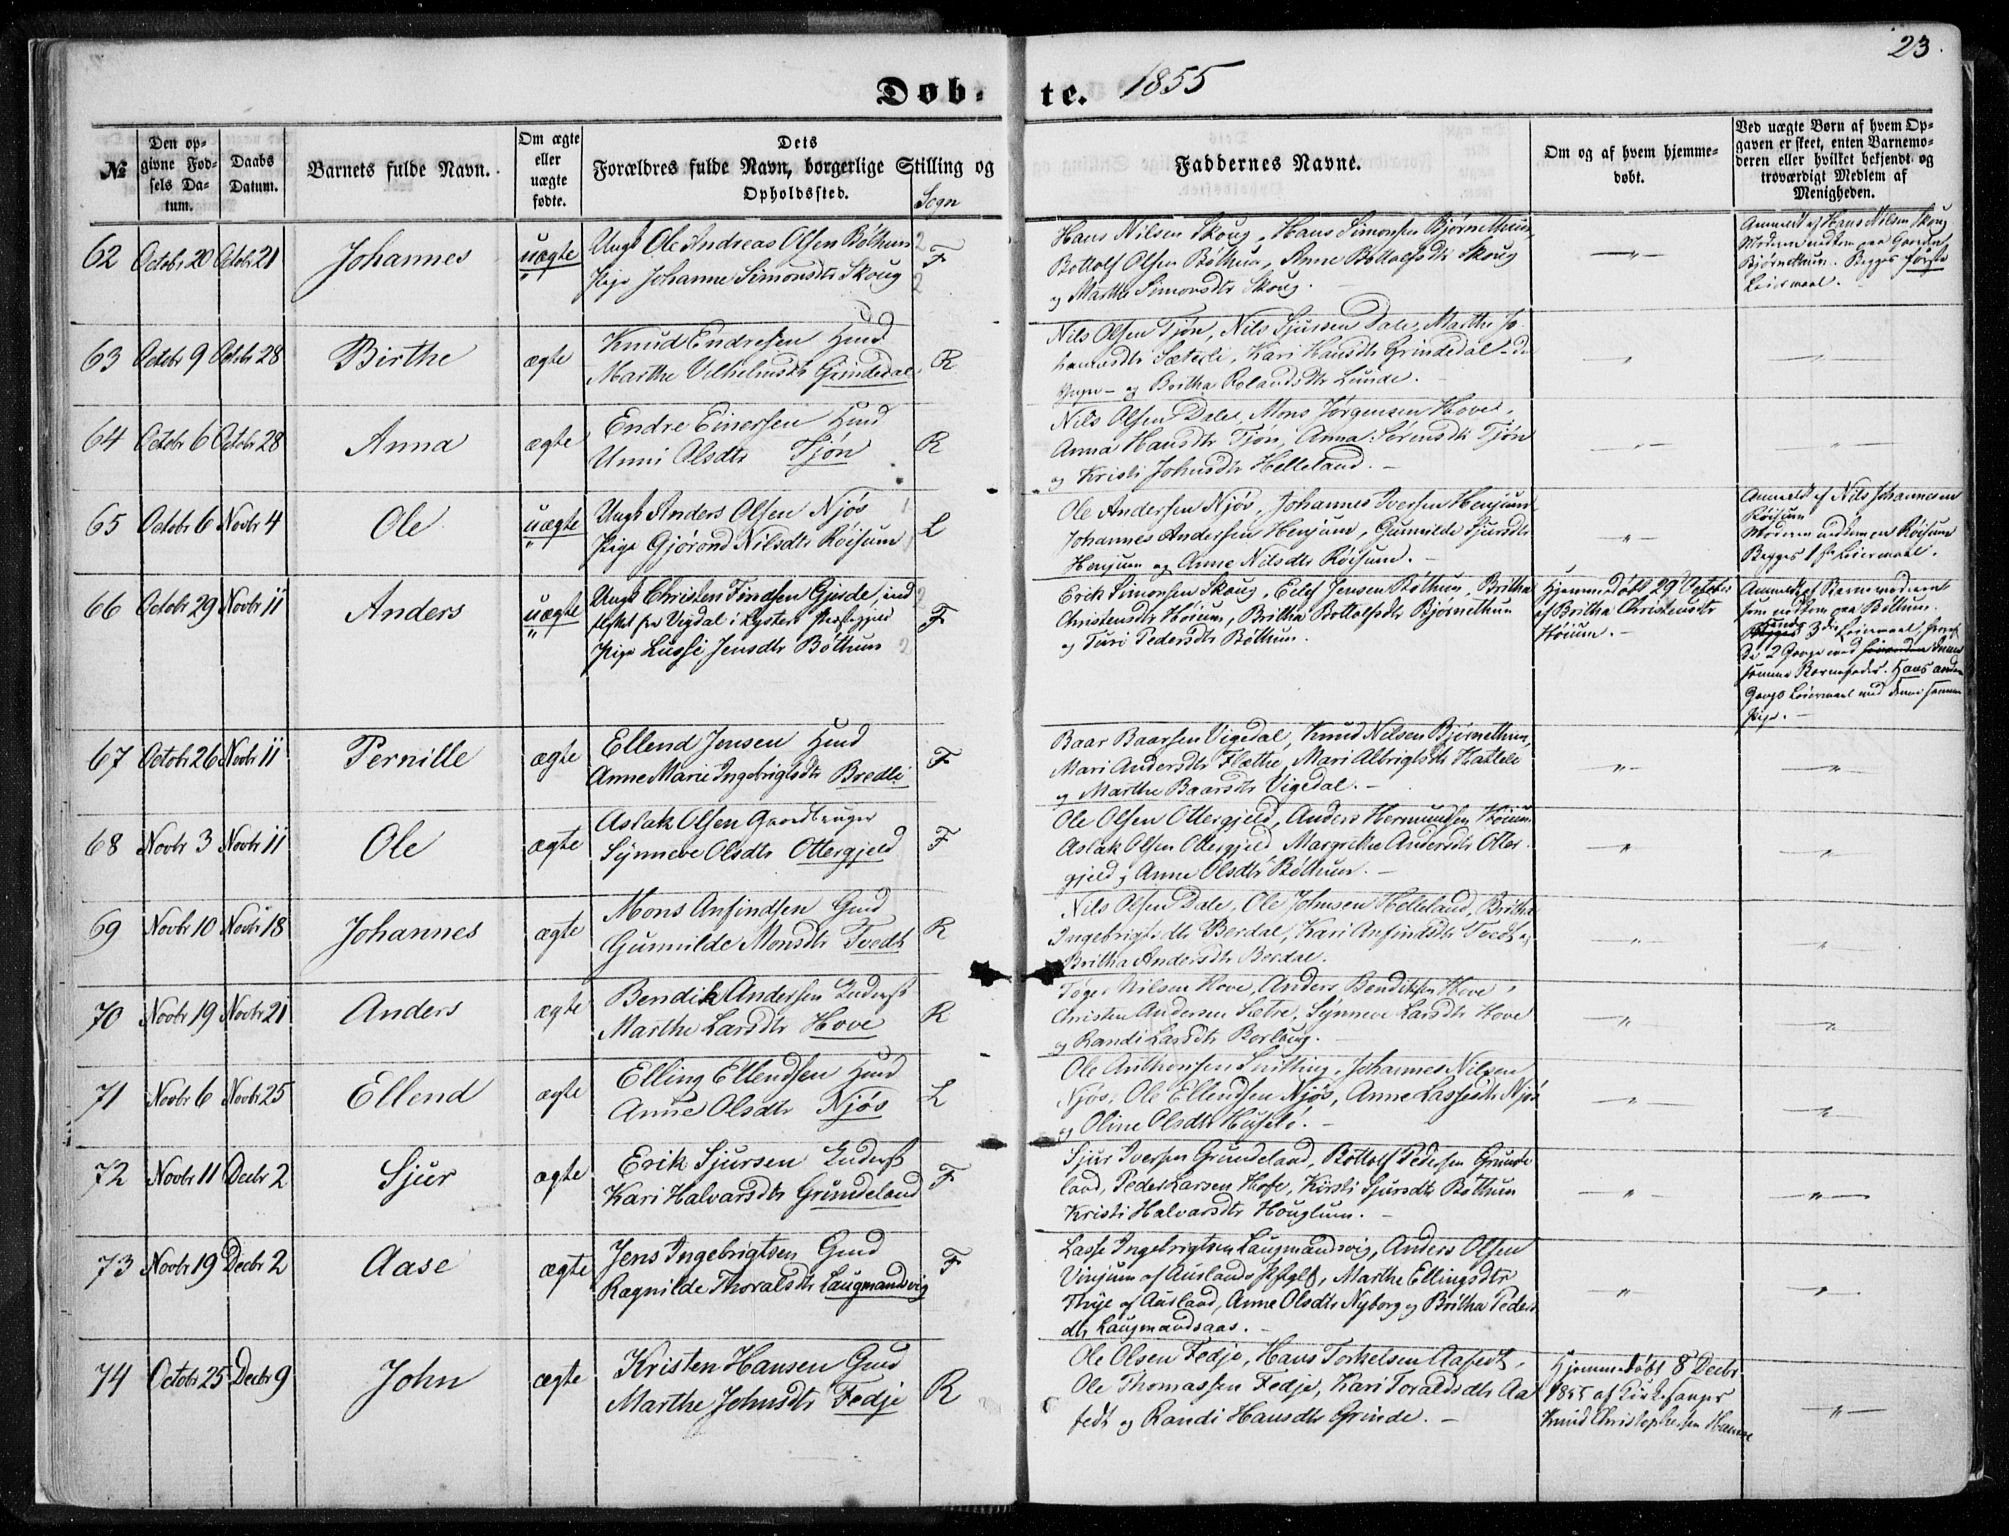 23.
Døb- te. 1855
№
Den op-
givne Fød-
sels Da-
tum.
Daabs
Datum.
Barnets fulde Navn.
Om ægte
eller
uægte
fødte.
Dets
Forældres fulde Navn, borgerlige Stilling og
Opholdssted.
Sogn
Faddernes Navne.
Om og af hvem hjemme-
døbt.
Ved uægte Børn af hvem Op-
gaven er skeet, enten Barnemo-
deren eller hvilket bekjendt og
troværdigt Medlem af
Menigheden.
62 Octobr 20 Octobr 21 Johannes uægte
Ungk Ole Andreas Olsen Bøthun 2
Pige Johanne Simonsdtr Skoug 2
F
Hans Nilsen Skoug, Hans Simonsen Bjørnethun,
Bottolf Olsen Bøthun, Anne Bottolfsdtr Skoug
og Marthe Simonsdtr Skoug.
Anmeldt af Hans Nilsen Skoug
Moderen nedkom paa Gaarden
Bjørnethun. Begges første
Leiermaal.
63 Octobr 9 Octobr 28 Birthe ægte
Knud Endresen Hmd
Marthe Vilhelmsdtr Grindedal
R
Nils Olsen Tjøn, Nils Sjursen Dale, Marthe Jo-
hannesdtr Sæterli, Kari Hansdtr Grindedal
og Britha Rolandsdtr Lunde.
64 Octobr 6 Octobr 28 Anna ægte
Endre Einersen Hmd
Unni Olsdtr Tjøn
R
Nils Olsen Dale, Mons Jørgensen Hove,
Anna Hansdtr Tjøn, Anna Sørensdtr Tjøn
og Kristi Johnsdtr Helleland.
65 Octobr 6 Novbr 4 Ole uægte
Ungk Anders Olsen Njøs 1
Pige Gjørond Nilsdtr Røisum
L
Ole Andersen Njøs, Johannes Iversen Henjum
Johannes Andersen Henjum, Gunnilde Sjursdtr
Henjum og Anne Nilsdtr Røisum.
Anmeldt af Nils Johannesen
Røisum
Moderen nedkom en Røisum
Begges 1ste Leiermaal.
66 Octobr 29 Novbr 11 Anders uægte
Ungk Christen Findsen Gjerde, ind 2
flyttet fra Vigdal i Lysters Prestegjeld
Pige Lussi Jensdtr Bøthun 2
F
Erik Simonsen Skoug, Eilef Jensen Bøthun, Britha
Christensdtr Høium, Britha Bottolfsdtr Bjørnethun
og Turi Pedersdtr Bøthun.
Hjemmedøbt 29 October
af Britha Christensdtr
Høium.
Anmeldt af Barnemoderen
som nedkom paa Bøthun.
Hendes 3die Leiermaal
de 2 Gange med
samme Barnefader. Hans anden
Gangs Leiermaal med denne samme
Pige.
67 Octobr 26 Novbr 11 Pernille ægte
Ellend Jensen Hmd
Anne Marie Ingebrigtsdtr Bredli
F
Baar Baarsen Vigedal, Knud Nilsen Bjørnethun,
Mari Andersdtr Flæthe, Mari Albrigtsdtr Hatlele
og Marthe Baarsdtr Vigedal.
68 Novbr 3 Novbr 11 Ole ægte
Aslak Olsen Gaardbruger
Synneve Olsdtr Ottergjeld
F
Ole Olsen Ottergjeld, Anders Hermundsen Høium
Aslak Olsen Ottergjeld Margrethe Andersdtr Otter-
gjeld, Anne Olsdtr Bøthun.
69 Novbr 10 Novbr 18 Johannes ægte
Mons Anfindsen Gmd
Gunnilde Monsdtr Tvedt
R
Nils Olsen Dale, Ole Johnsen Helleland, Britha
Ingebrigtsdtr Berdal, Kari Anfindsdtr Tvedt og
Britha Andersdtr Berdal.
70 Novbr 19 Novbr 21 Anders ægte
Bendik Andersen Inderst
Marthe Larsdtr Hove
R
Tøger Nilsen Hove, Anders Bendiksen Hove,
Christen Andersen Sætre, Synneve Larsdtr Hove
og Randi Larsdtr Borlaug.
71 Novbr 6 Novbr 25 Ellend ægte
Elling Ellendsen Hmd
Anne Olsdtr Njøs
L
Ole Anthonsen Suitting, Johannes Nilsen
Njøs, Ole Ellendsen Njøs, Anne Lassesdtr Njøs
og Oline Olsdtr Huselø.
72 Novbr 11 Decbr 2 Sjur ægte
Erik Sjursen Inderst
Kari Halvarsdtr Grundeland
F
Sjur Iversen Grundeland, Bottolf Pedersen Grunde
land, Peder Larsen Hofe, Kirsti Sjursdtr Bøthun
Kristi Halvarsdtr Houglum.
73 Novbr 19 Decbr 2 Aase ægte
Jens Ingebrigtsen Gmd
Ragnilde Thoralsdtr Laugmandsvig
F
Lasse Ingebrigtsen Laugmandsvig, Anders Olsen
Vinjum af Auslands Pstgld, Marthe Ellingsdtr
Thye af Ausland, Anne Olsdtr Nyborg og Britha Peders
dtr Laugmandsaas.
74 Octobr 25 Decbr 9 John ægte
Kristen Hansen Gmd
Marthe Johnsdtr Fedje
R
Ole Olsen Fedje, Hans Torkelsen Aafedt,
Ole Thomassen Fedje, Kari Toraldsdtr Aa
fedt og Randi Hansdtr Grinde.
Hjemmedøbt 8 Decbr
1855 af Kirkesanger
Knud Christophersen Hamre